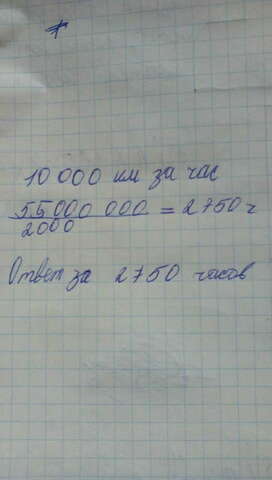 10 000 км за час
55000 000 / 2000 = 2750 ч
Ответ за 2750 часов